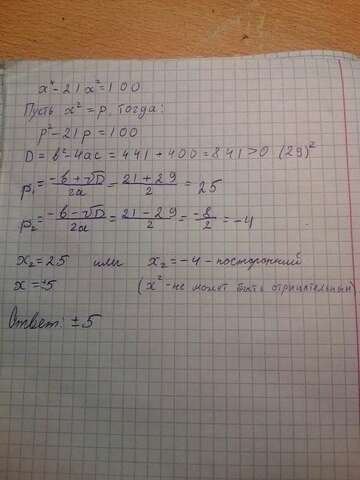 x⁴-21x²=100
Пусть x²=p, тогда:
p²-21p=100
D=b²-4ac=441+400=841>0 (29)²
p₁=(-b+√D)/2a=(21+29)/2=25
p₂=(-b-√D)/2a=(21-29)/2=-8/2=-4
x₂=25 или x₂=-4-посторонний
x=±5 (x²-не может быть отрицательным)
Ответ: ±5